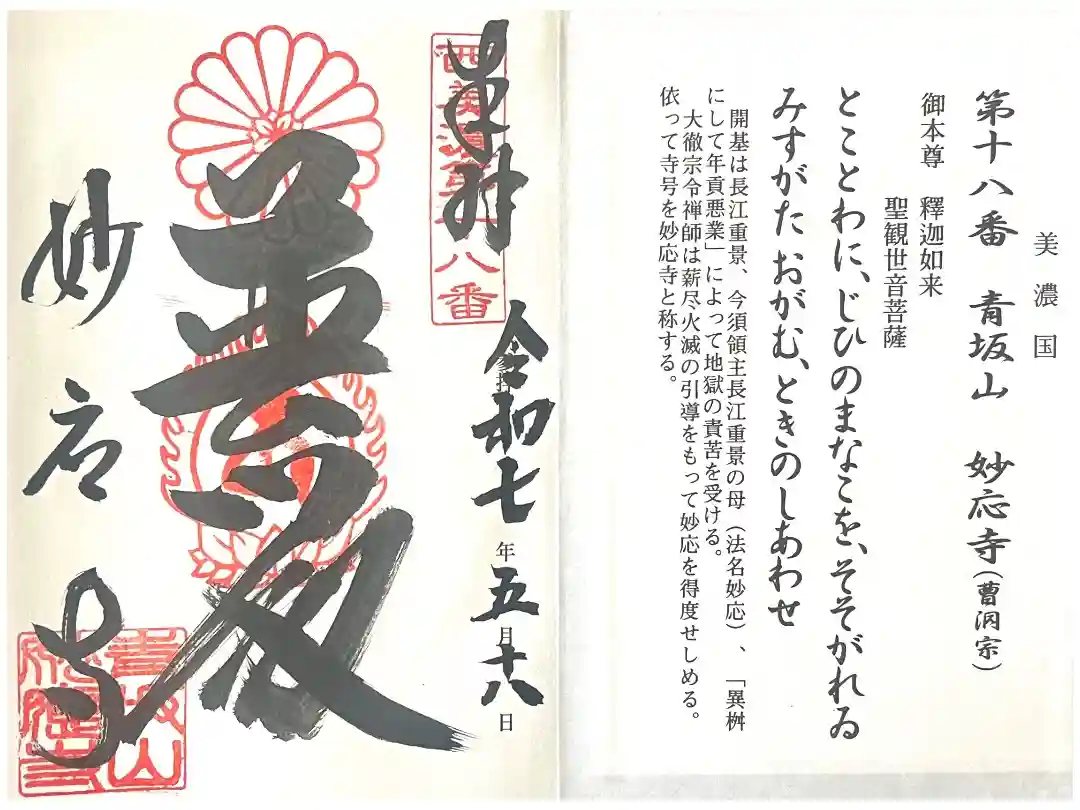 美濃国
第十八番　青坂山　妙応寺（曹洞宗）
御本尊　釋迦如来
聖観世音菩薩
とことわに、じひのまなこを、そそがれゐ
みすがた おがむ、ときのしあわせ
開基は長江重景、今須領主長江重景の母（法名妙応）、「異桝
にして年貢悪業」によって地獄の責苦を受ける。
大徹宗令禅師は薪尽火滅の引導をもって妙応を得度せしめる。
依って寺号を妙応寺と称する。
奉拝
西美濃 八番
令和七年五月十八日
妙応寺
青坂山
妙應寺